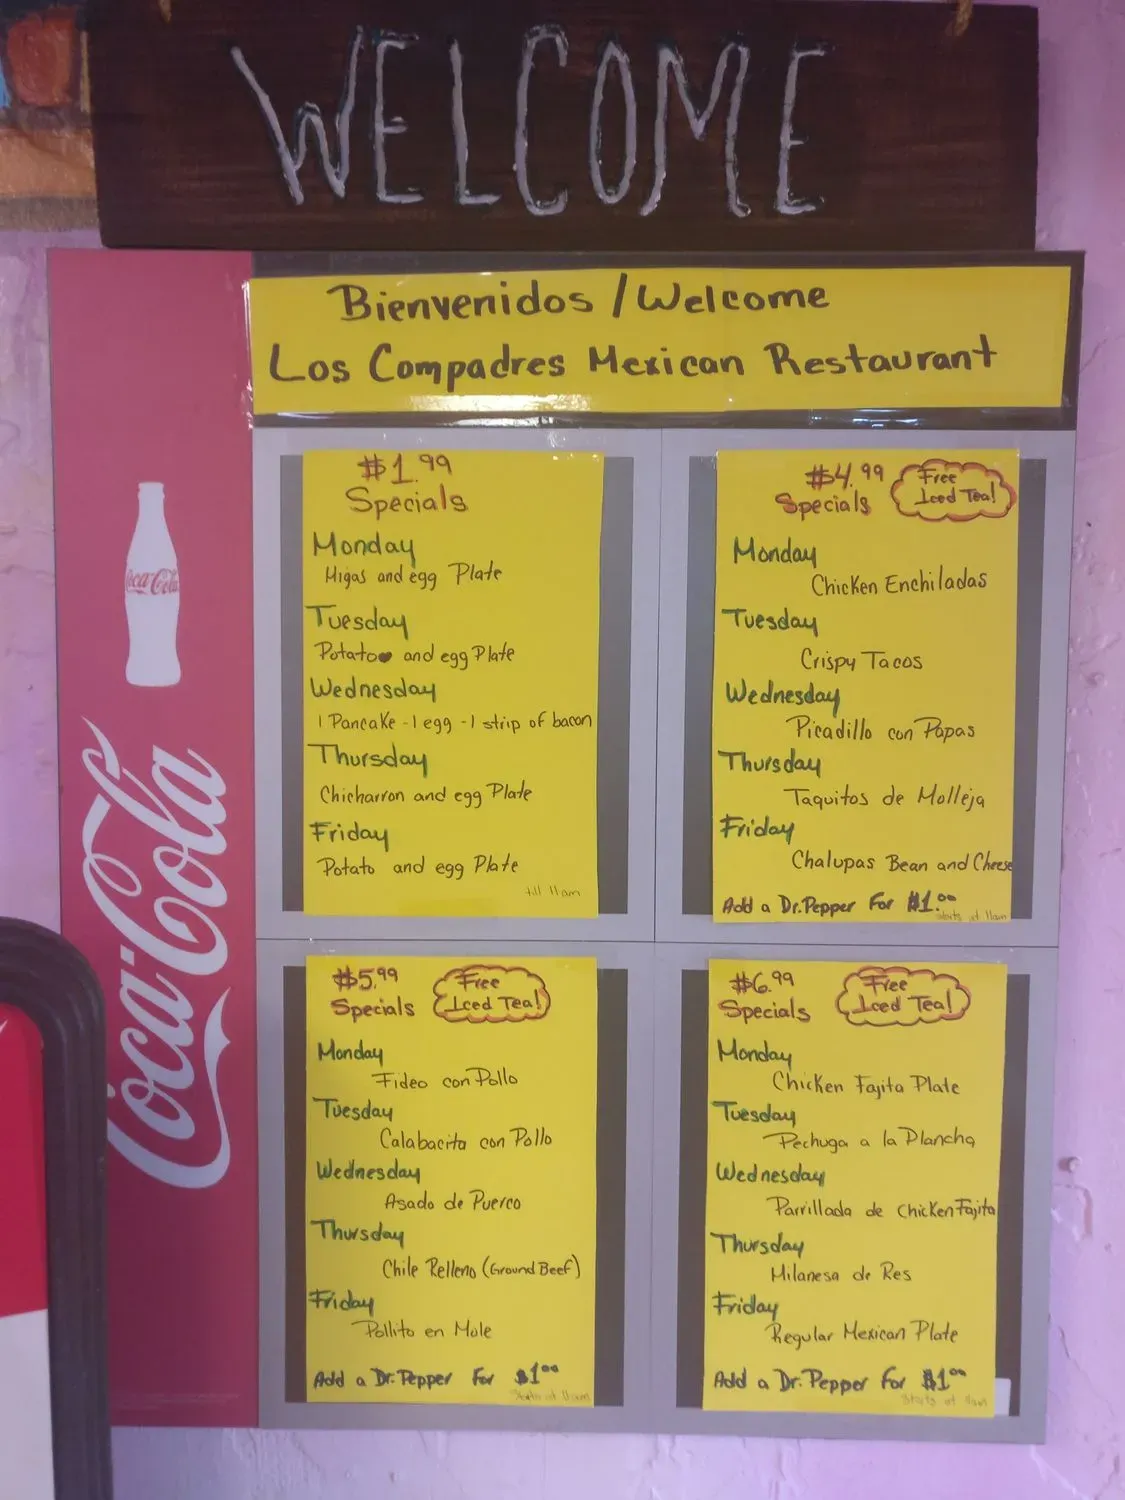 WELCOME
Bienvenidos / Welcome
Los Compadres Mexican Restaurant
$1.99
Specials
Monday
Migas and egg Plate
Tuesday
Potato and egg Plate
Wednesday
1 Pancake - 1 egg - 1 strip of bacon
Thursday
Chicharron and egg Plate
Friday
Potato and egg Plate
till 11am
$4.99
Specials
Free
Iced Tea!
Monday
Chicken Enchiladas
Tuesday
Crispy Tacos
Wednesday
Picadillo con Papas
Thursday
Taquitos de Molleja
Friday
Chalupas Bean and Cheese
Add a Dr. Pepper For $1.00
Starts at 11am
$5.99
Specials
Free
Iced Tea!
Monday
Fideo con Pollo
Tuesday
Calabacita con Pollo
Wednesday
Asado de Puerco
Thursday
Chile Relleno (Ground Beef)
Friday
Pollito en Mole
Add a Dr. Pepper For $1.00
Starts at 11am
$6.99
Specials
Free
Iced Tea!
Monday
Chicken Fajita Plate
Tuesday
Pechuga a la Plancha
Wednesday
Parrillada de Chicken Fajita
Thursday
Milanesa de Res
Friday
Regular Mexican Plate
Add a Dr. Pepper For $1.00
Starts at 11am
Coca-Cola
Coca-Cola